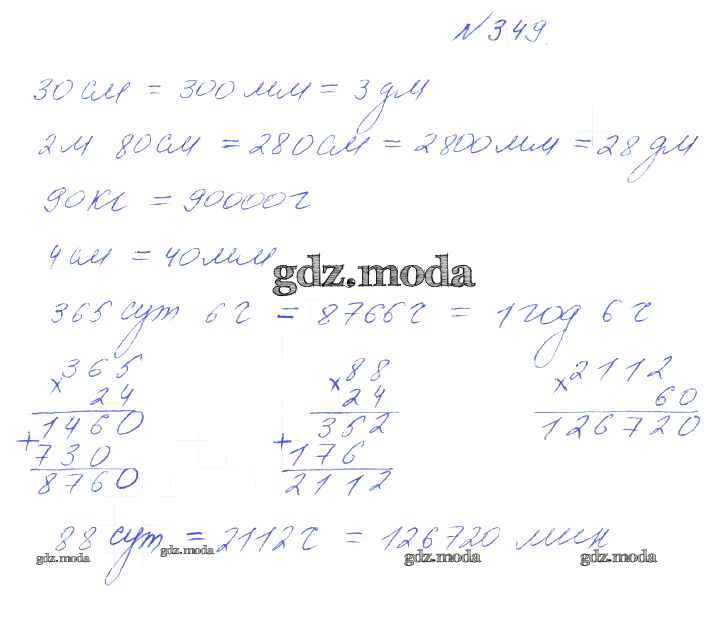 №349.
30 см = 300 мм = 3 дм
2 м 80 см = 280 см = 2800 мм = 28 дм
90 кг = 90000 г
4 см = 40 мм
gdz.moda
365 сут 6 ч = 8766 ч = 1 год 6 ч
×365 ×88 ×2112
24 24 60
1460 352 126720
+730 +176
8760 2112
88 сут = 2112 ч = 126720 мин
gdz.moda gdz.moda gdz.moda gdz.moda